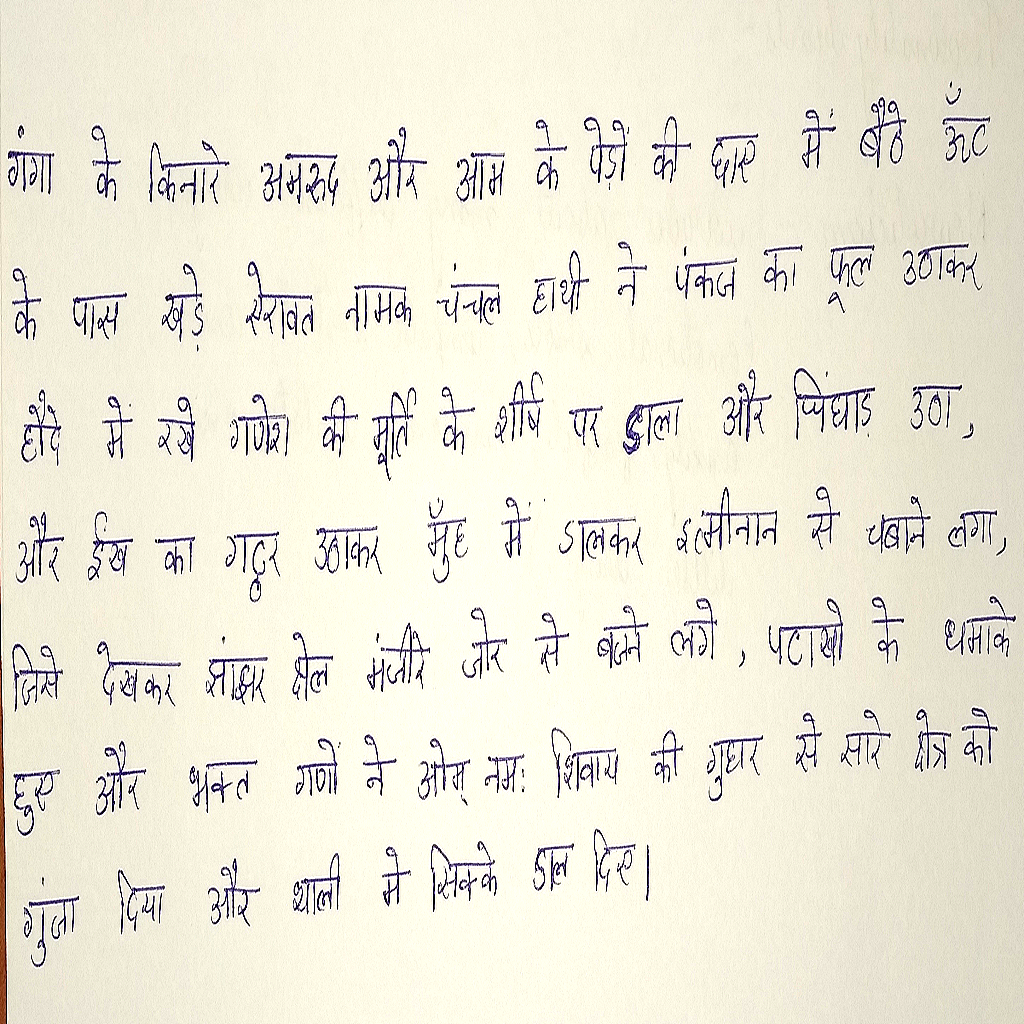 गंगा के किनारे अमरूद और आम के पेड़ों की छाए में बैठे ऊँट
के पास खड़े ऐरावत नामक चंचल हाथी ने पंकज का फूल उठाकर
हौदे में रखे गणेश की मूर्ति के शीर्ष पर डाला और चिंघाड़ उठा,
और ईख का गट्ठर उठाकर मुँह में डालकर इत्मीनान से चबाने लगा,
जिसे देखकर झांझर ढोल मंजीरे जोर से बजने लगे, पटाखो के धमाके
हुए और भक्त गणों ने ओम् नमः शिवाय की गुहार से सारे क्षेत्र को
गुंजा दिया और थाली मे सिक्के डाल दिए।